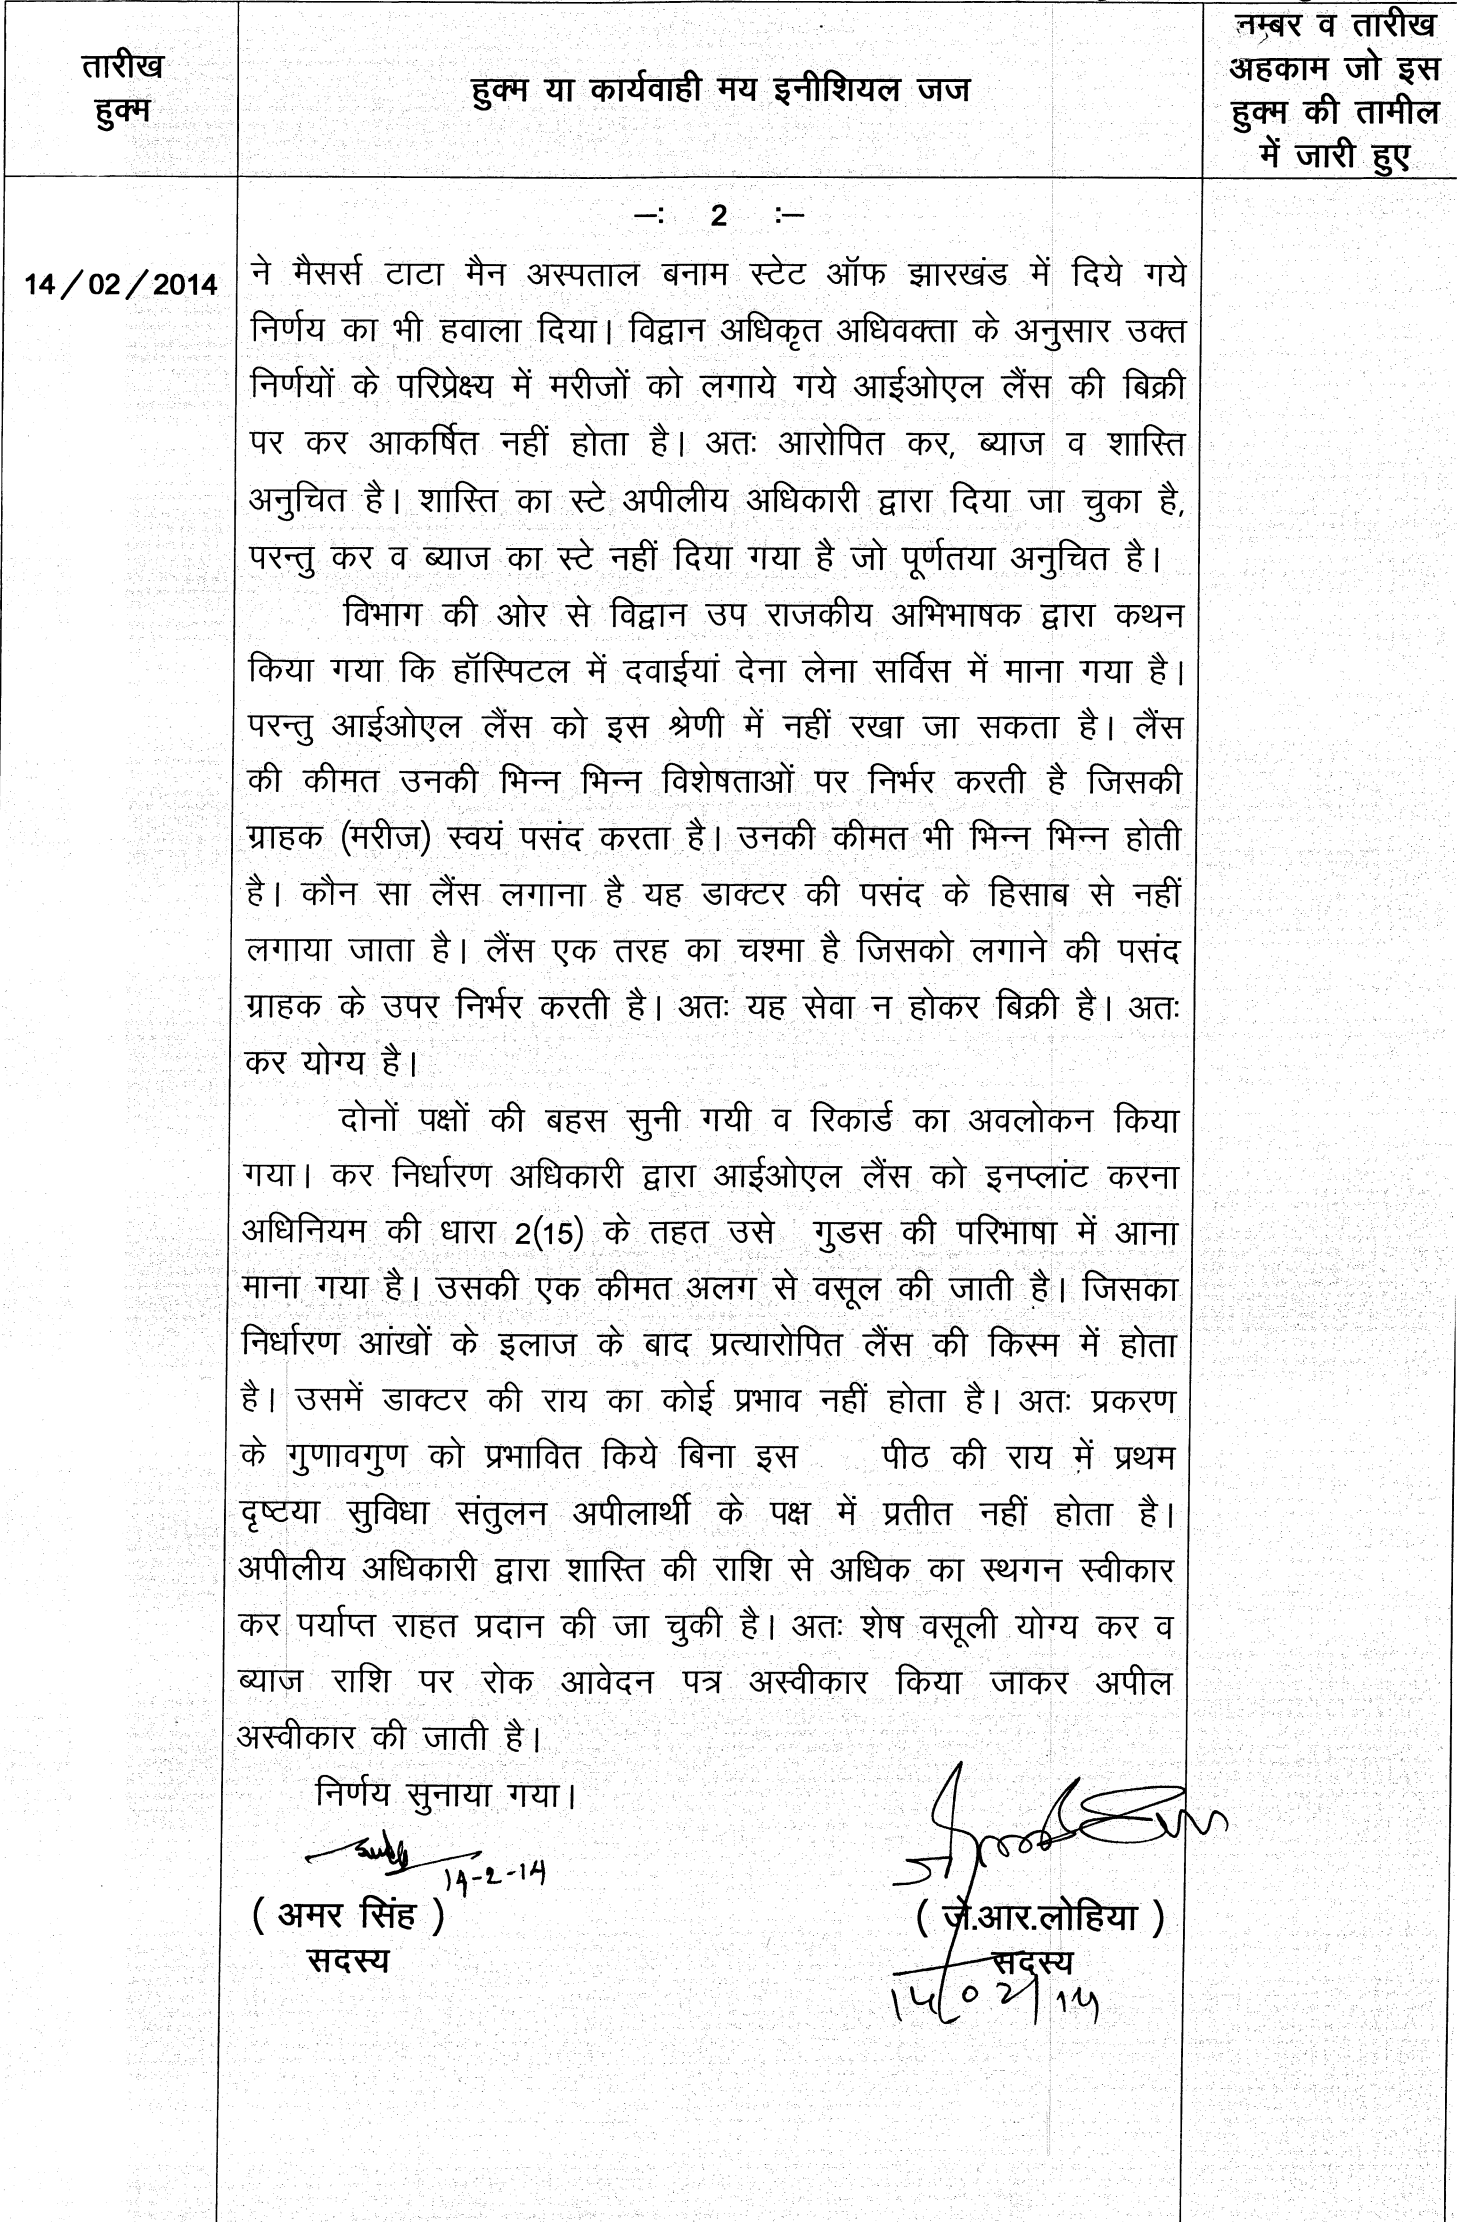 तारीख
हुक्म
हुक्म या कार्यवाही मय इनीशियल जज
नम्बर व तारीख
अहकाम जो इस
हुक्म की तामील
में जारी हुए
–: 2 :–
14/02/2014
ने मैसर्स टाटा मैन अस्पताल बनाम स्टेट ऑफ झारखंड में दिये गये
निर्णय का भी हवाला दिया। विद्वान अधिकृत अधिवक्ता के अनुसार उक्त
निर्णयों के परिप्रेक्ष्य में मरीजों को लगाये गये आईओएल लैंस की बिक्री
पर कर आकर्षित नहीं होता है। अतः आरोपित कर, ब्याज व शास्ति
अनुचित है। शास्ति का स्टे अपीलीय अधिकारी द्वारा दिया जा चुका है,
परन्तु कर व ब्याज का स्टे नहीं दिया गया है जो पूर्णतया अनुचित है।
विभाग की ओर से विद्वान उप राजकीय अभिभाषक द्वारा कथन
किया गया कि हॉस्पिटल में दवाईयां देना लेना सर्विस में माना गया है।
परन्तु आईओएल लैंस को इस श्रेणी में नहीं रखा जा सकता है। लैंस
की कीमत उनकी भिन्न भिन्न विशेषताओं पर निर्भर करती है जिसकी
ग्राहक (मरीज) स्वयं पसंद करता है। उनकी कीमत भी भिन्न भिन्न होती
है। कौन सा लैंस लगाना है यह डाक्टर की पसंद के हिसाब से नहीं
लगाया जाता है। लैंस एक तरह का चश्मा है जिसको लगाने की पसंद
ग्राहक के उपर निर्भर करती है। अतः यह सेवा न होकर बिक्री है। अतः
कर योग्य है।
दोनों पक्षों की बहस सुनी गयी व रिकार्ड का अवलोकन किया
गया। कर निर्धारण अधिकारी द्वारा आईओएल लैंस को इनप्लांट करना
अधिनियम की धारा 2(15) के तहत उसे गुडस की परिभाषा में आना
माना गया है। उसकी एक कीमत अलग से वसूल की जाती है। जिसका
निर्धारण आंखों के इलाज के बाद प्रत्यारोपित लैंस की किस्म में होता
है। उसमें डाक्टर की राय का कोई प्रभाव नहीं होता है। अतः प्रकरण
के गुणावगुण को प्रभावित किये बिना इस पीठ की राय में प्रथम
दृष्टया सुविधा संतुलन अपीलार्थी के पक्ष में प्रतीत नहीं होता है।
अपीलीय अधिकारी द्वारा शास्ति की राशि से अधिक का स्थगन स्वीकार
कर पर्याप्त राहत प्रदान की जा चुकी है। अतः शेष वसूली योग्य कर व
ब्याज राशि पर रोक आवेदन पत्र अस्वीकार किया जाकर अपील
अस्वीकार की जाती है।
निर्णय सुनाया गया।
14-2-14
( अमर सिंह )
सदस्य
( जे.आर.लोहिया )
सदस्य
14/02/14